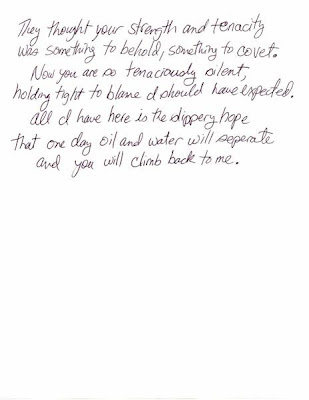 They thought your strength and tenacity
was something to behold, something to covet.
Now you are so tenaciously silent,
holding tight to blame I should have expected.
All I have here is the slippery hope
that one day oil and water will seperate
and you will climb back to me.